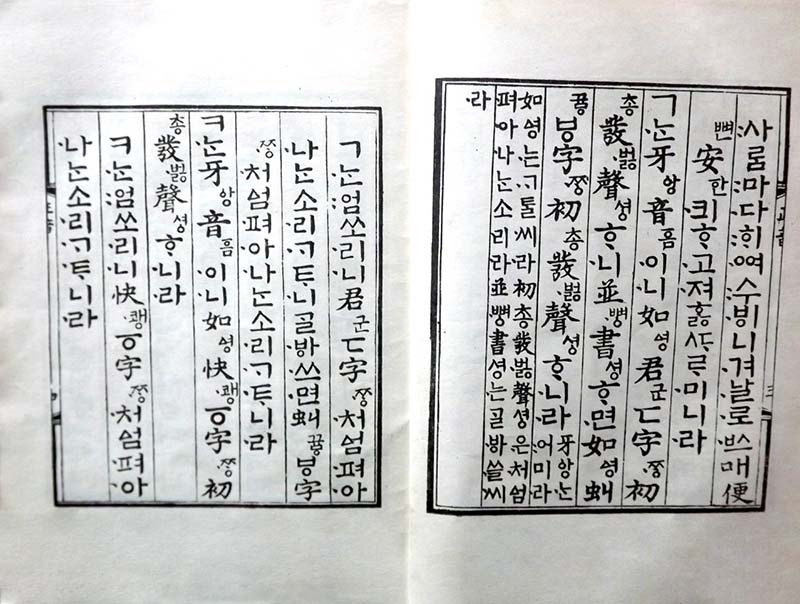 사ᄅᆞᆷ마다ᄒᆡᅇᅧ수ᄫᅵ니겨날로ᄡᅮ메便
뼌安ᅙᅡᆫ킈ᄒᆞ고져ᄒᆞᇙᄯᆞᄅᆞ미니라
ㄱᄂᆞᆫ牙ᅌᅡᆼ音ᅙᅳᆷ이니如ᅀᅧᆼ君군ㄷ字ᄍᆞᆼ初
총發벓聲셩ᄒᆞ니並뼝書셩ᄒᆞ면如ᅀᅧᆼ虯
뀨ᇢㅸ字ᄍᆞᆼ初총發벓聲셩ᄒᆞ니라牙ᅌᅡᆼᄂᆞᆫ어미라
如ᅀᅧᆼ는ᄀᆞᄐᆞᆯ씨라初총發벓聲셩은처ᅀᅥᆷ
펴아나ᄂᆞᆫ소리라並뼝書셩는ᄀᆞᆯᄫᅡ쓸씨
라
ㄱᄂᆞᆫ엄쏘리니君군ㄷ字ᄍᆞᆼ처ᅀᅥᆷ펴아
나ᄂᆞᆫ소리ᄀᆞᄐᆞ니ᄀᆞᆯᄫᅡ쓰면虯뀨ᇢㅸ字
ᄍᆞᆼ처ᅀᅥᆷ펴아나ᄂᆞᆫ소리ᄀᆞᄐᆞ니라
ㅋᄂᆞᆫ牙ᅌᅡᆼ音ᅙᅳᆷ이니如ᅀᅧᆼ快쾡ㆆ字ᄍᆞᆼ初
총發벓聲셩ᄒᆞ니라
ㅋᄂᆞᆫ엄쏘리니快쾡ㆆ字ᄍᆞᆼ처ᅀᅥᆷ펴아
나ᄂᆞᆫ소리ᄀᆞᄐᆞ니라